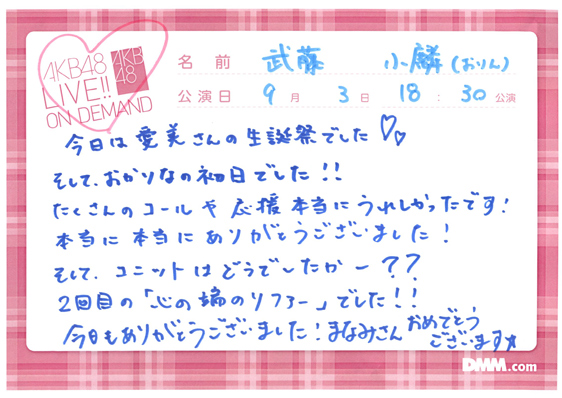 AKB48
LIVE!!
ON DEMAND
AKB
48
名前 武藤 小麟(おりん)
公演日 9月 3日 18:30公演
今日は愛美さんの生誕祭でした♡♡
そして、おかりなの初日でした!!
たくさんのコールや応援本当にうれしかったです!
本当に本当にありがとうございました!
そして、ユニットはどうでしたかー??
2回目の「心の端のソファー」でした!!
今日もありがとうございました!まなみさん おめでとう
ございます☆
DMM.com